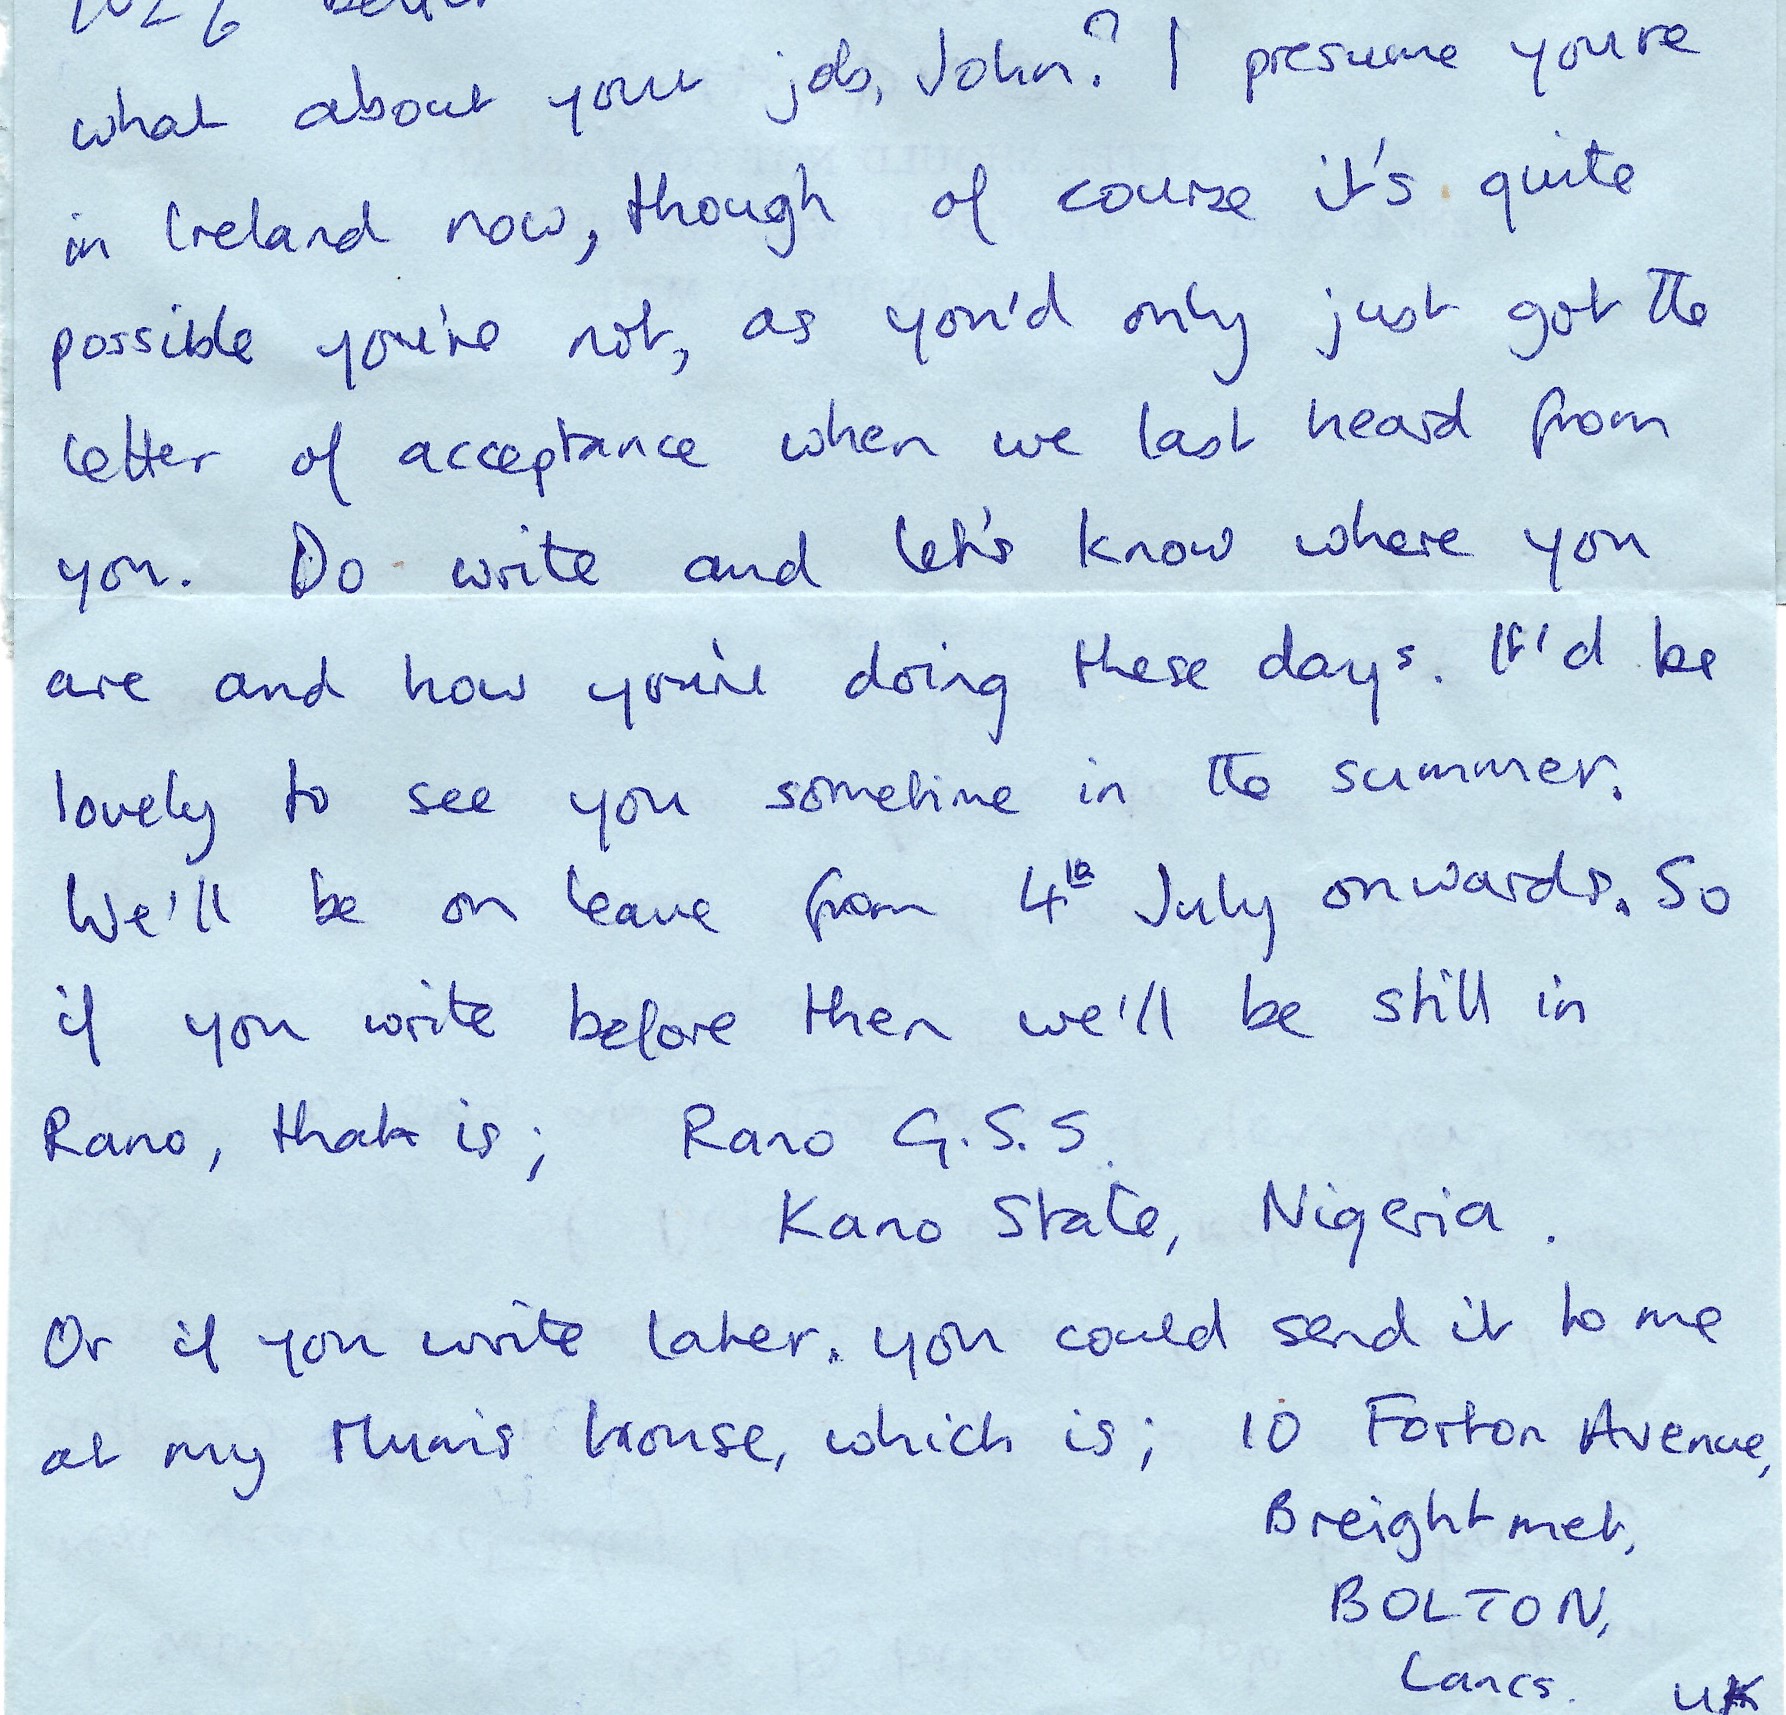 what about your job, John? I presume you're
in Ireland now, though of course it's quite
possible you're not, as you'd only just got the
letter of acceptance when we last heard from
you. Do write and let's know where you
are and how you're doing these days. It'd be
lovely to see you sometime in the summer.
We'll be on leave from 4th July onwards. So
if you write before then we'll be still in
Rano, that is; Rano G.S.S.
Kano State, Nigeria.
Or if you write later. you could send it to me
at my Mum's house, which is; 10 Forton Avenue,
Breightmet,
BOLTON,
Lancs. UK